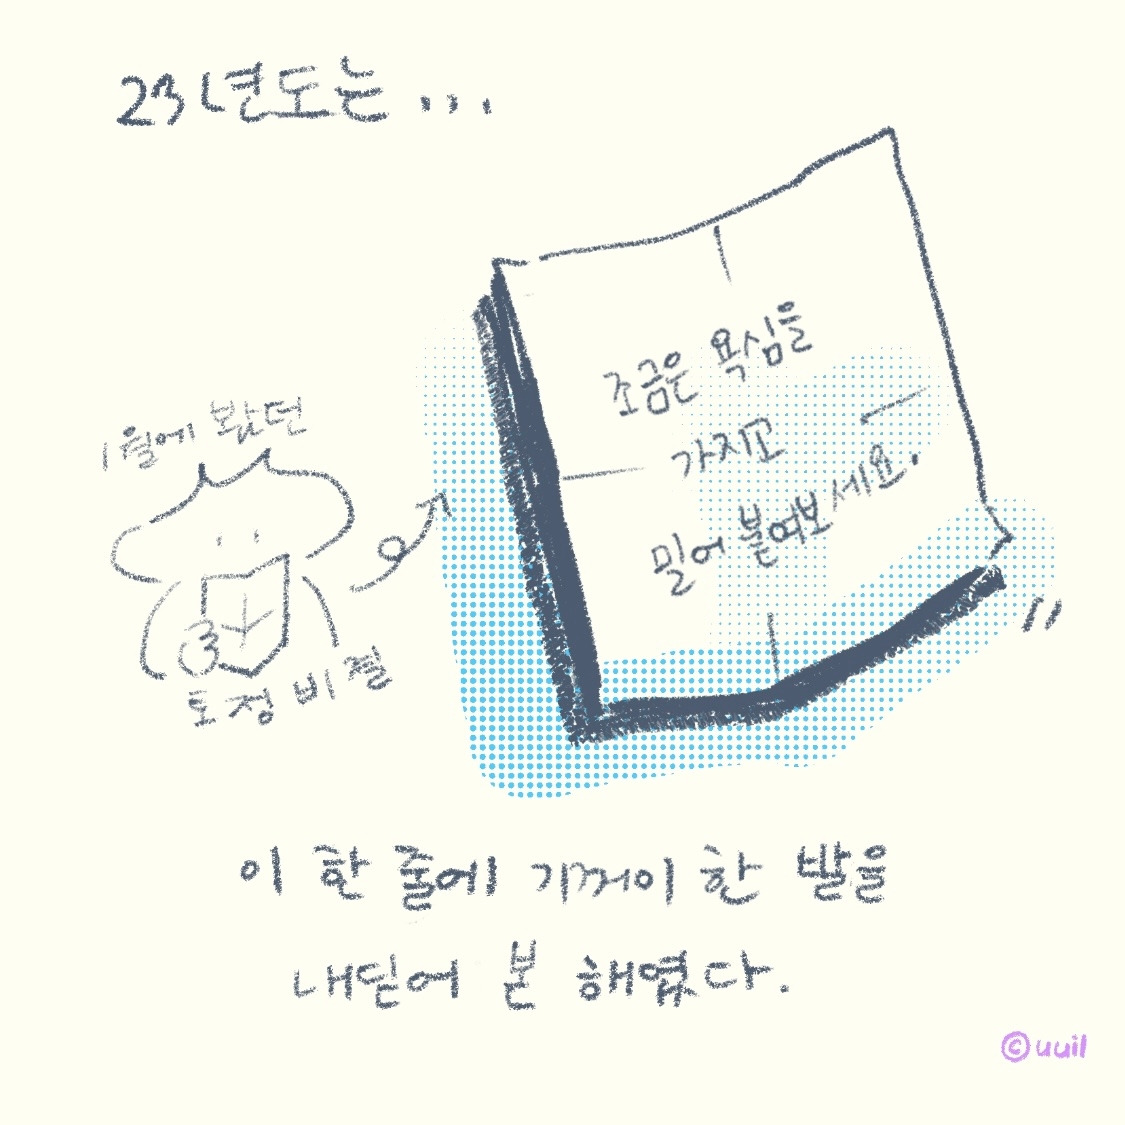 23년도는...
1월에 봤던
토정비결
조금은 욕심을
가지고
밀어 붙여보세요.
이 한 줄에 기꺼이 한 발을
내딛어 본 해였다.
©uuil